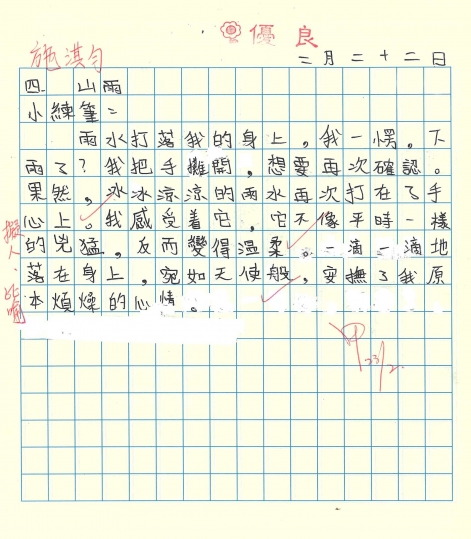 優良
施淇勻
二月二十二日
四. 山雨
小練筆二
雨水打落我的身上，我一愣。下
雨了？我把手攤開，想要再次確認。
果然，冰冰涼涼的雨水再次打在了手
心上。我感受着它，它不像平時一樣
的兇猛，反而變得溫柔。一滴一滴地
落在身上，宛如天使般，安撫了我原
本煩燥的心情。
擬人、比喻
甲
23/2